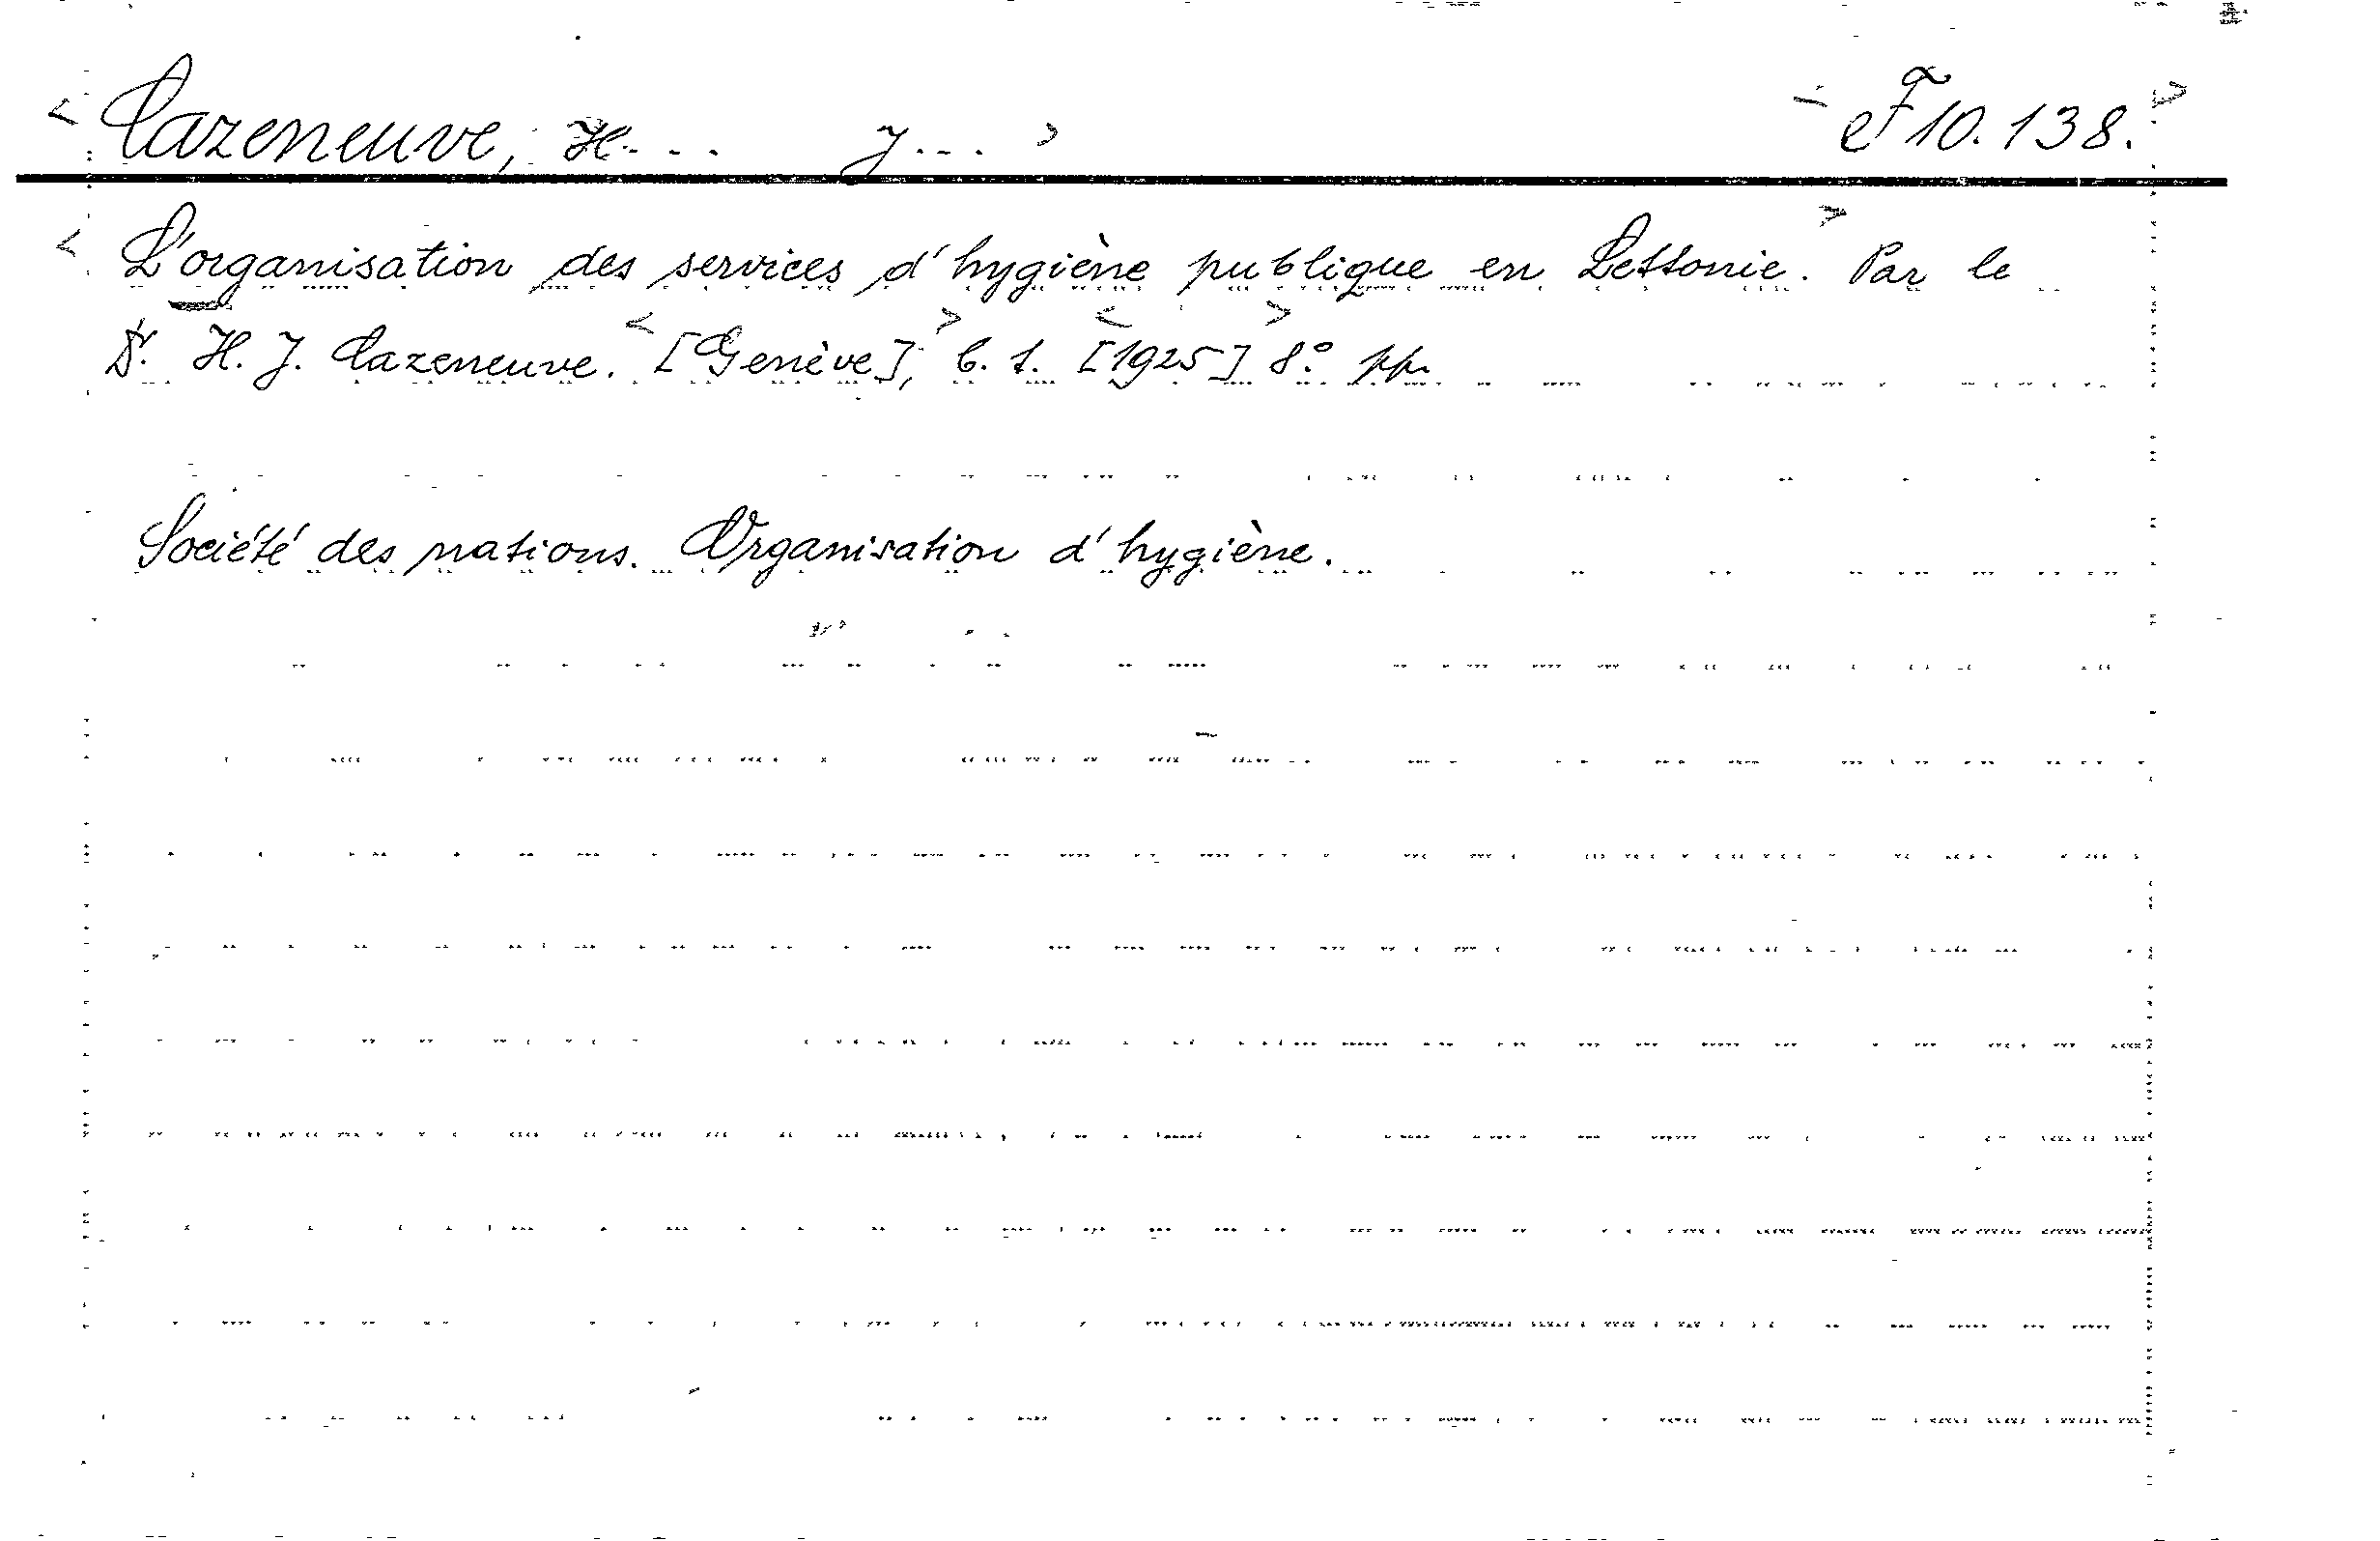 < Cazeneuve, H... J... > < F 10.138. >
< L'organisation des services d'hygiène publique en Lettonie. > Par le
Dr. H. J. Cazeneuve. < [Genève], > b. t. < [1925] > 8° pp.
Société des nations. Organisation d'hygiène.